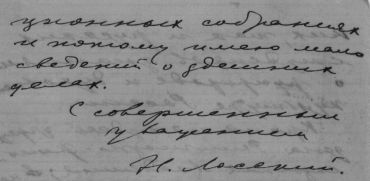 ционных собраниях
и потому имею мало
сведений о здешних
делах.
С совершенным
уважением
Н. Лосский.